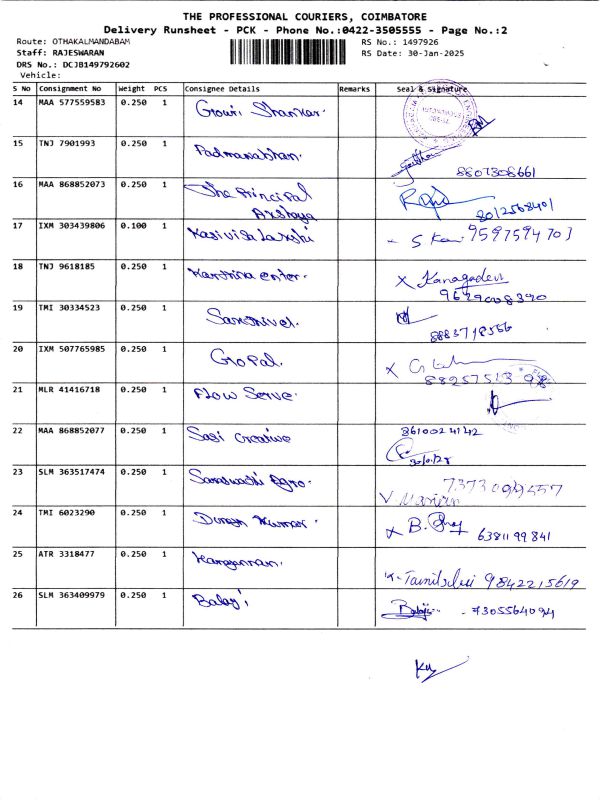 THE PROFESSIONAL COURIERS, COIMBATORE
Delivery Runsheet - PCK - Phone No.:0422-3505555 - Page No.:2
Route: OTHAKALMANDABAM RS No.: 1497926
Staff: RAJESWARAN RS Date: 30-Jan-2025
DRS No.: DCJB149792602
Vehicle:
S No Consignment No Weight PCS Consignee Details Remarks Seal & Signature
14 MAA 577559583 0.250 1 Gowri Shankar.
15 TNJ 7901993 0.250 1 Padmanabhan.
8807308661
16 MAA 868852073 0.250 1 The Principal
Akshaya 8012568401
17 IXM 303439806 0.100 1 Kasi Visa Laxshi - S Kani 9597594703
18 TNJ 9618185 0.250 1 Karthika enter. x Kanagadevi
9629008390
19 TMI 30334523 0.250 1 Sakthivel.
8883718566
20 IXM 507765985 0.250 1 Gopal. x
88257513 98
21 MLR 41416718 0.250 1 Flow Serve.
22 MAA 868852077 0.250 1 Sasi Creative 8610024142
30/1/25
23 SLM 363517474 0.250 1 Saraswathi Agro.
24 TMI 6023290 0.250 1 Dinesh Kumar. x B.
6381199841
25 ATR 3318477 0.250 1 Kangamman.
K. Tamilselvi 9842215619
26 SLM 363409979 0.250 1 Balaji Balaji - 7305564094